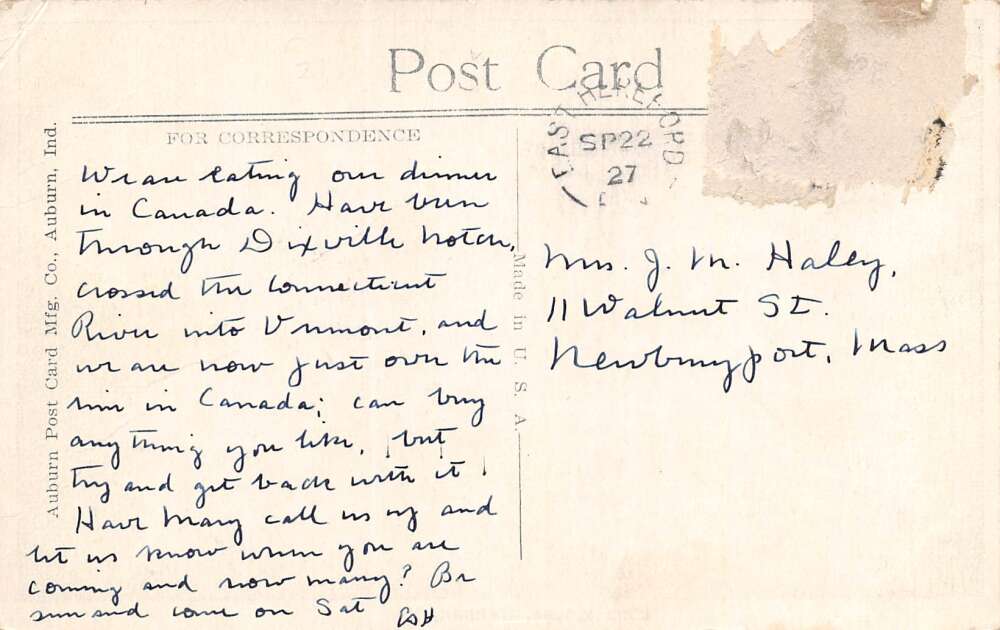 Post Card
FOR CORRESPONDENCE
EAST HEREFORD
SP 22
27
Auburn Post Card Mfg. Co., Auburn, Ind.
Made in U. S. A.
We are eating our dinner
in Canada. Have been
through Dixville Notch,
crossed the Connecticut
River into Vermont, and
we are now just over the
line in Canada; can buy
anything you like, but
try and get back with it!
Have Mary call us up and
let us know when you are
coming and how many? Be
sure and come on Sat
Mrs. J. M. Haley,
11 Walnut St.
Newburyport, Mass